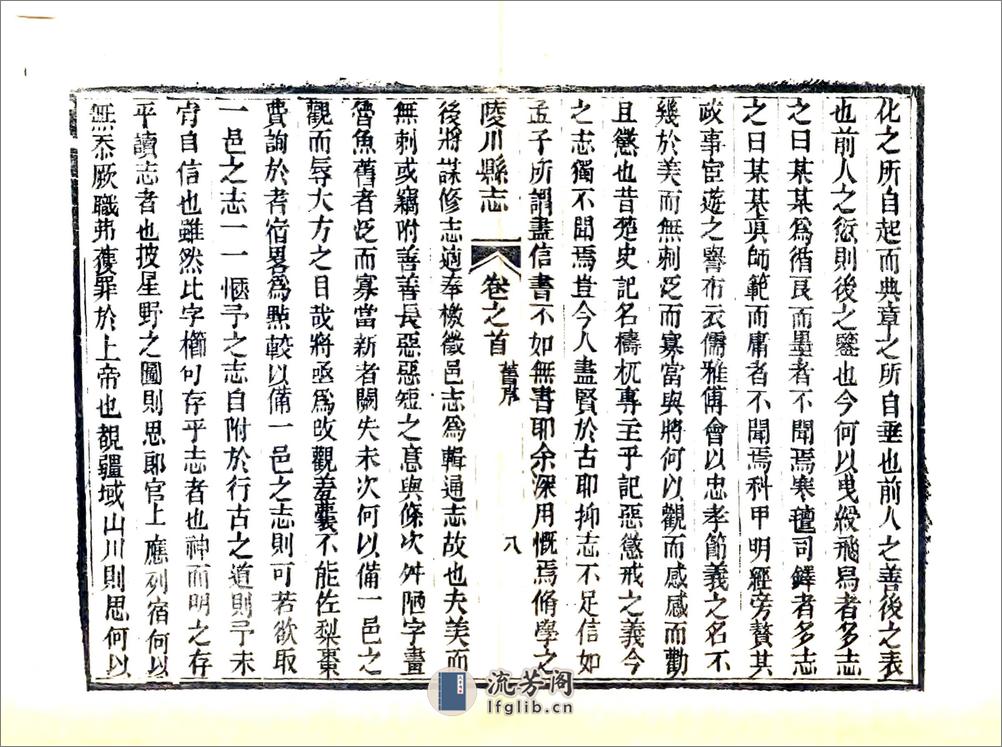 化之所自起而典章之所自垂也前人之善後之表
也前人之愆則後之鑒也今何以曳綬飛舄者多志
之曰某某為循良而墨者不聞焉寒氊司鐸者多志
之曰某某真師範而庸者不聞焉科甲明經旁贅其
政事宦遊之譽布衣儒雅傅會以忠孝節義之名不
幾於美而無刺泛而寡當與將何以觀而感感而勸
且懲也昔楚史記名檮杌專主乎記惡懲戒之義今
之志獨不聞焉豈今人盡賢於古耶抑志不足信如
孟子所謂盡信書不如無書耶余深用慨焉脩學之
陵川縣志 卷之首 舊序 八
後將謀修志適奉檄徵邑志為輯通志故也夫美而
無刺或竊附善善長惡惡短之意與條次舛陋字畫
魯魚舊者泛而寡當新者闕失未次何以備一邑之
觀而辱大方之目哉將亟為改觀羞囊不能佐梨棗
費詢於耆宿畧為點較以備一邑之志則可若欲取
一邑之志一一愜予之志自附於行古之道則予未
肯自信也雖然比字櫛句存乎志者也神而明之存
乎讀志者也披星野之圖則思郎官上應列宿何以
無忝厥職弗獲罪於上帝也覩疆域山川則思何以
流芳阁
lfglib.cn